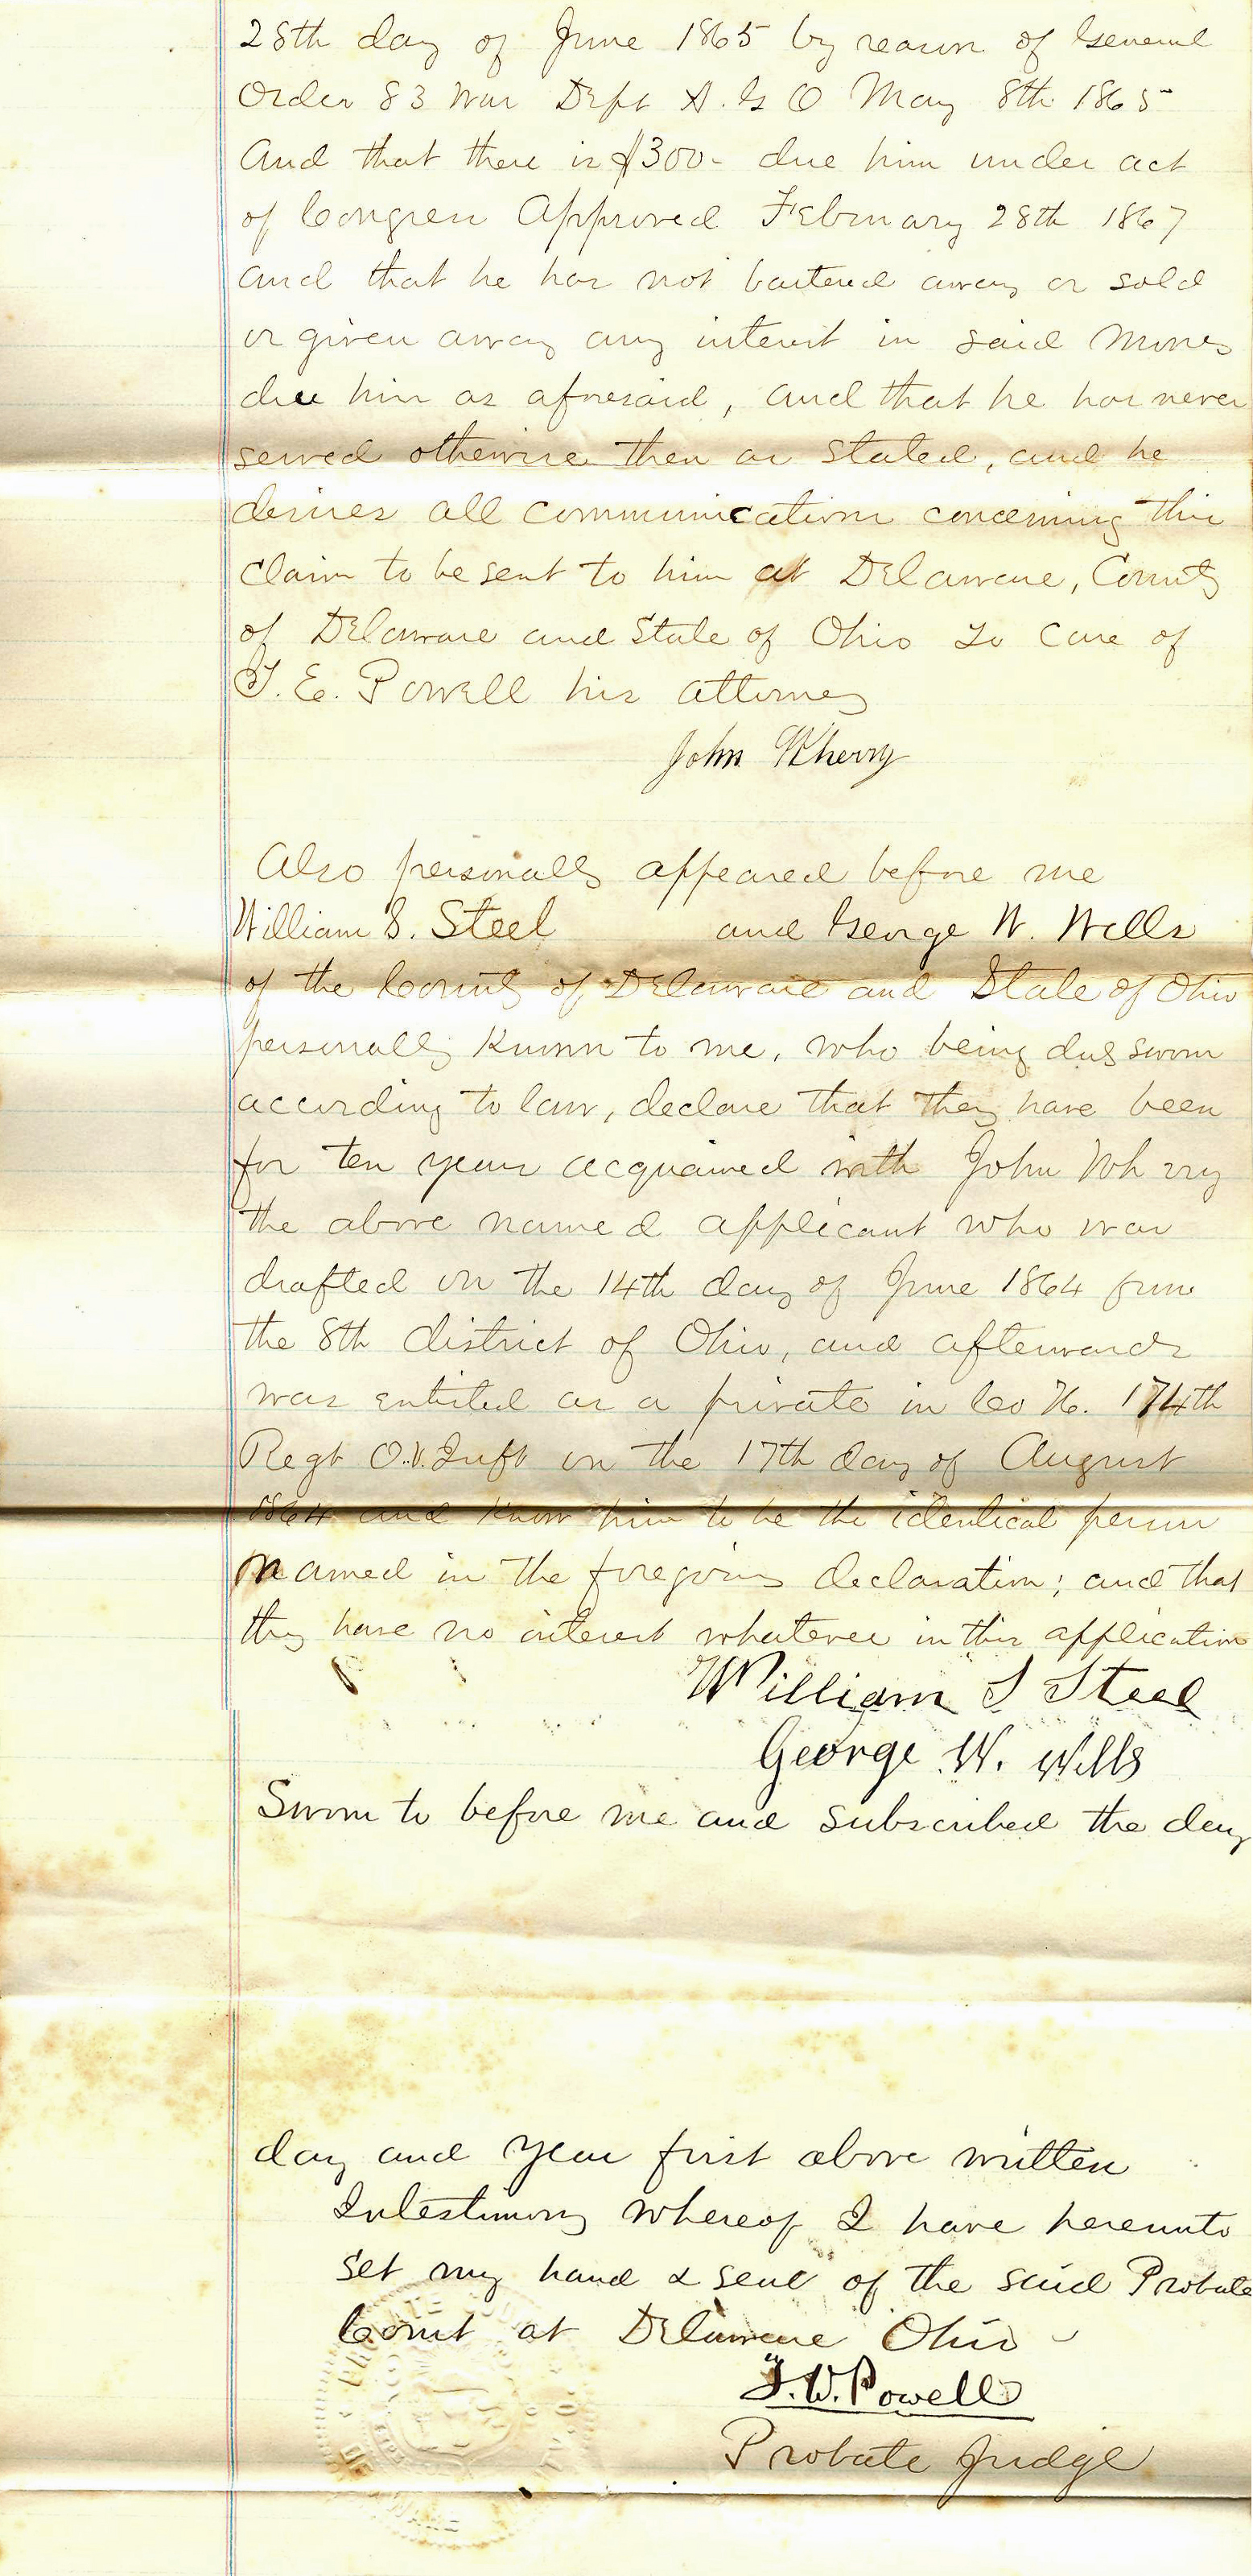 28th day of June 1865 by reason of General
Order 83 War Dept A. G O May 8th 1865
And that there is $300- due him under act
of Congress Approved February 28th 1867
and that he has not bartered away or sold
or given away any interest in said Money
due him as aforesaid, and that he has never
served otherwise then as stated, and he
desires all communications concerning this
claim to be sent to him at Delaware, County
of Delaware and State of Ohio to care of
T. E. Powell his attorney
John Wherry
Also personally appeared before me
William S. Steel and George W. Wells
of the County of Delaware and State of Ohio
personally known to me, who being duly sworn
according to law, declare that they have been
for ten years acquained with John Wherry
the above named applicant who was
drafted on the 14th day of June 1864 from
the 8th district of Ohio, and afterwards
was entisted as a private in Co 174th
Regt O.V. Inft on the 17th day of August
1864 and know him to be the identical person
named in the foregoing declaration; and that
they have no interest whatever in this application
William S Steel
George W. Wells
Sworn to before me and subscribed the day
day and year first above written
Intestimony whereof I have hereunto
set my hand & seal of the said Probate
Court at Delaware Ohio
T. W. Powell
Probate Judge